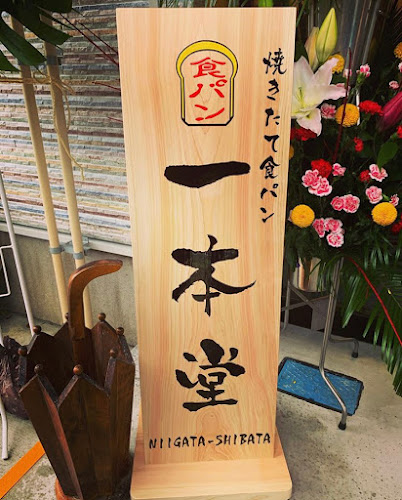 焼きたて食パン
食パン
一本堂
NIIGATA-SHIBATA